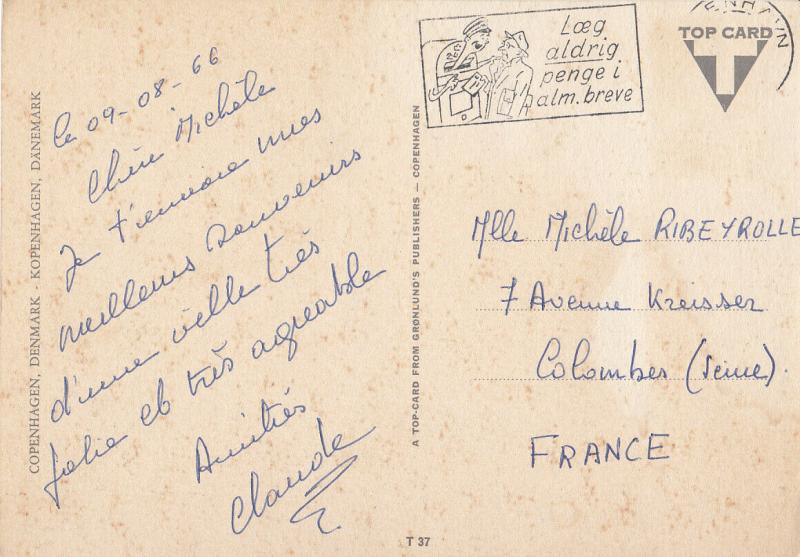 COPENHAGEN, DENMARK - KOPENHAGEN, DÄNEMARK
le 09-08-66
Chère Michèle
Je t'envoie mes
meilleurs souvenirs
d'une ville très
jolie et très agréable
Amitiés
Claude
A TOP-CARD FROM GRØNLUND'S PUBLISHERS — COPENHAGEN
T 37
Læg
aldrig
penge i
alm. breve
TOP CARD
T
Mlle Michèle RIBEYROLLE
7 Avenue Kreisser
Colombes (Seine).
FRANCE